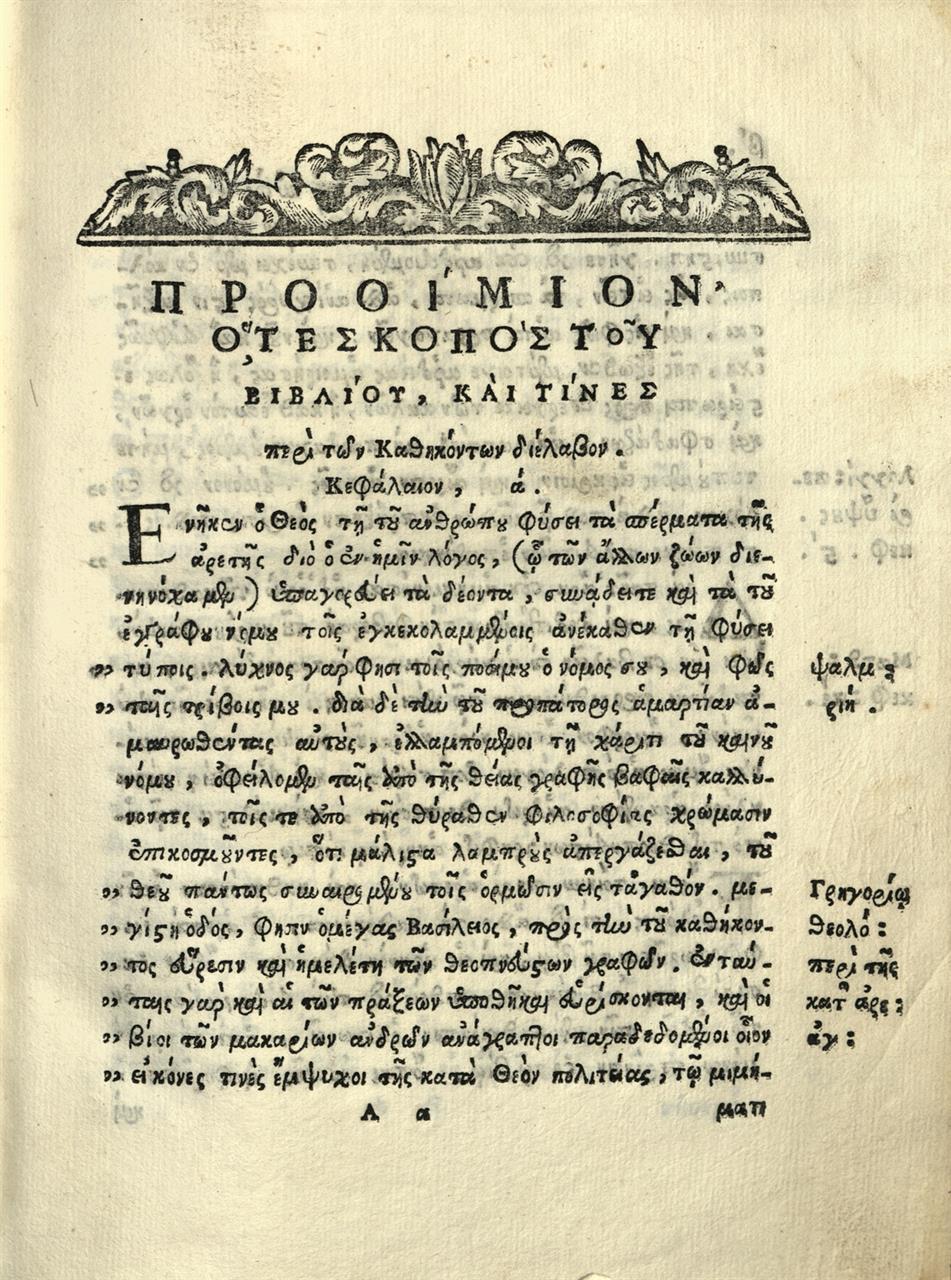 ΠΡΟΟΊΜΙΟΝ,
Ὅ,ΤΕ ΣΚΟΠῸΣ ΤΟΥ͂
ΒΙΒΛΊΟΥ, ΚΑῚ ΤΊΝΕΣ
περὶ τῶν Καθηκόντων διέλαβον.
Κεφάλαιον, ά.
Ενῆκεν ὁ Θεὸς τῇ τοῦ ἀνθρώπου φύσει τὰ σπέρματα τῆς
ἀρετῆς διὸ ὁ ἐν ἡμῖν λόγος, (ᾧ τῶν ἄλλων ζώων διε-
νηνόχαμεν) ὑπαγορεύει τὰ δέοντα, συνᾴδειτε καὶ τὰ τοῦ
ἐγγράφου νόμου τοῖς ἐγκεκολαμμένοις ἀνέκαθεν τῇ φύσει
,, τύποις. λύχνος γαρ φησι τοῖς ποσίμου ὁ νόμος σου, καὶ φῶς ψαλμ:
,, ταῖς τρίβοις μου. διὰ δὲ τὴν τοῦ προπάτορος ἁμαρτίαν ἀ- ριή.
μαυρωθέντας αὐτοὺς, ἐλλαμπόμενοι τῇ χάριτι τοῦ καινοῦ
νόμου, ὀφείλομεν ταῖς ἀπὸ τῆς θείας γραφῆς βαφαῖς καλλύ-
νοντες, τοῖς τε ἀπὸ τῆς θύραθεν φιλοσοφίας χρώμασιν
ἐπικοσμοῦντες, ὅτι μάλιστα λαμπροὺς ἀπεργάζεσθαι, τοῦ
,, θεοῦ πάντως συναιρομένου τοῖς ὁρμῶσιν εἰς τἀγαθόν. με- Γρηγορίῳ
,, γίστη ὁδὸς, φησὶν ὁμέγας Βασίλειος, πρὸς τὴν τοῦ καθήκον- θεολό:
,, τος εὕρεσιν καὶ ἡμελέτη τῶν θεοπνεύστων γραφῶν. ἐν ταύ- περὶ τῆς
,, ταις γαρ καὶ αἱ τῶν πράξεων ὑποθῆκαι εὑρίσκονται, καὶ οἱ κατ' ἀρε:
,, βίοι τῶν μακαρίων ἀνδρῶν ἀνάγραπτοι παραδεδομένοι οἷον ἀγ:
,, εἰκόνες τινὲς ἔμψυχοι τῆς κατὰ Θεὸν πολιτείας, τῷ μιμή-
Α α ματι